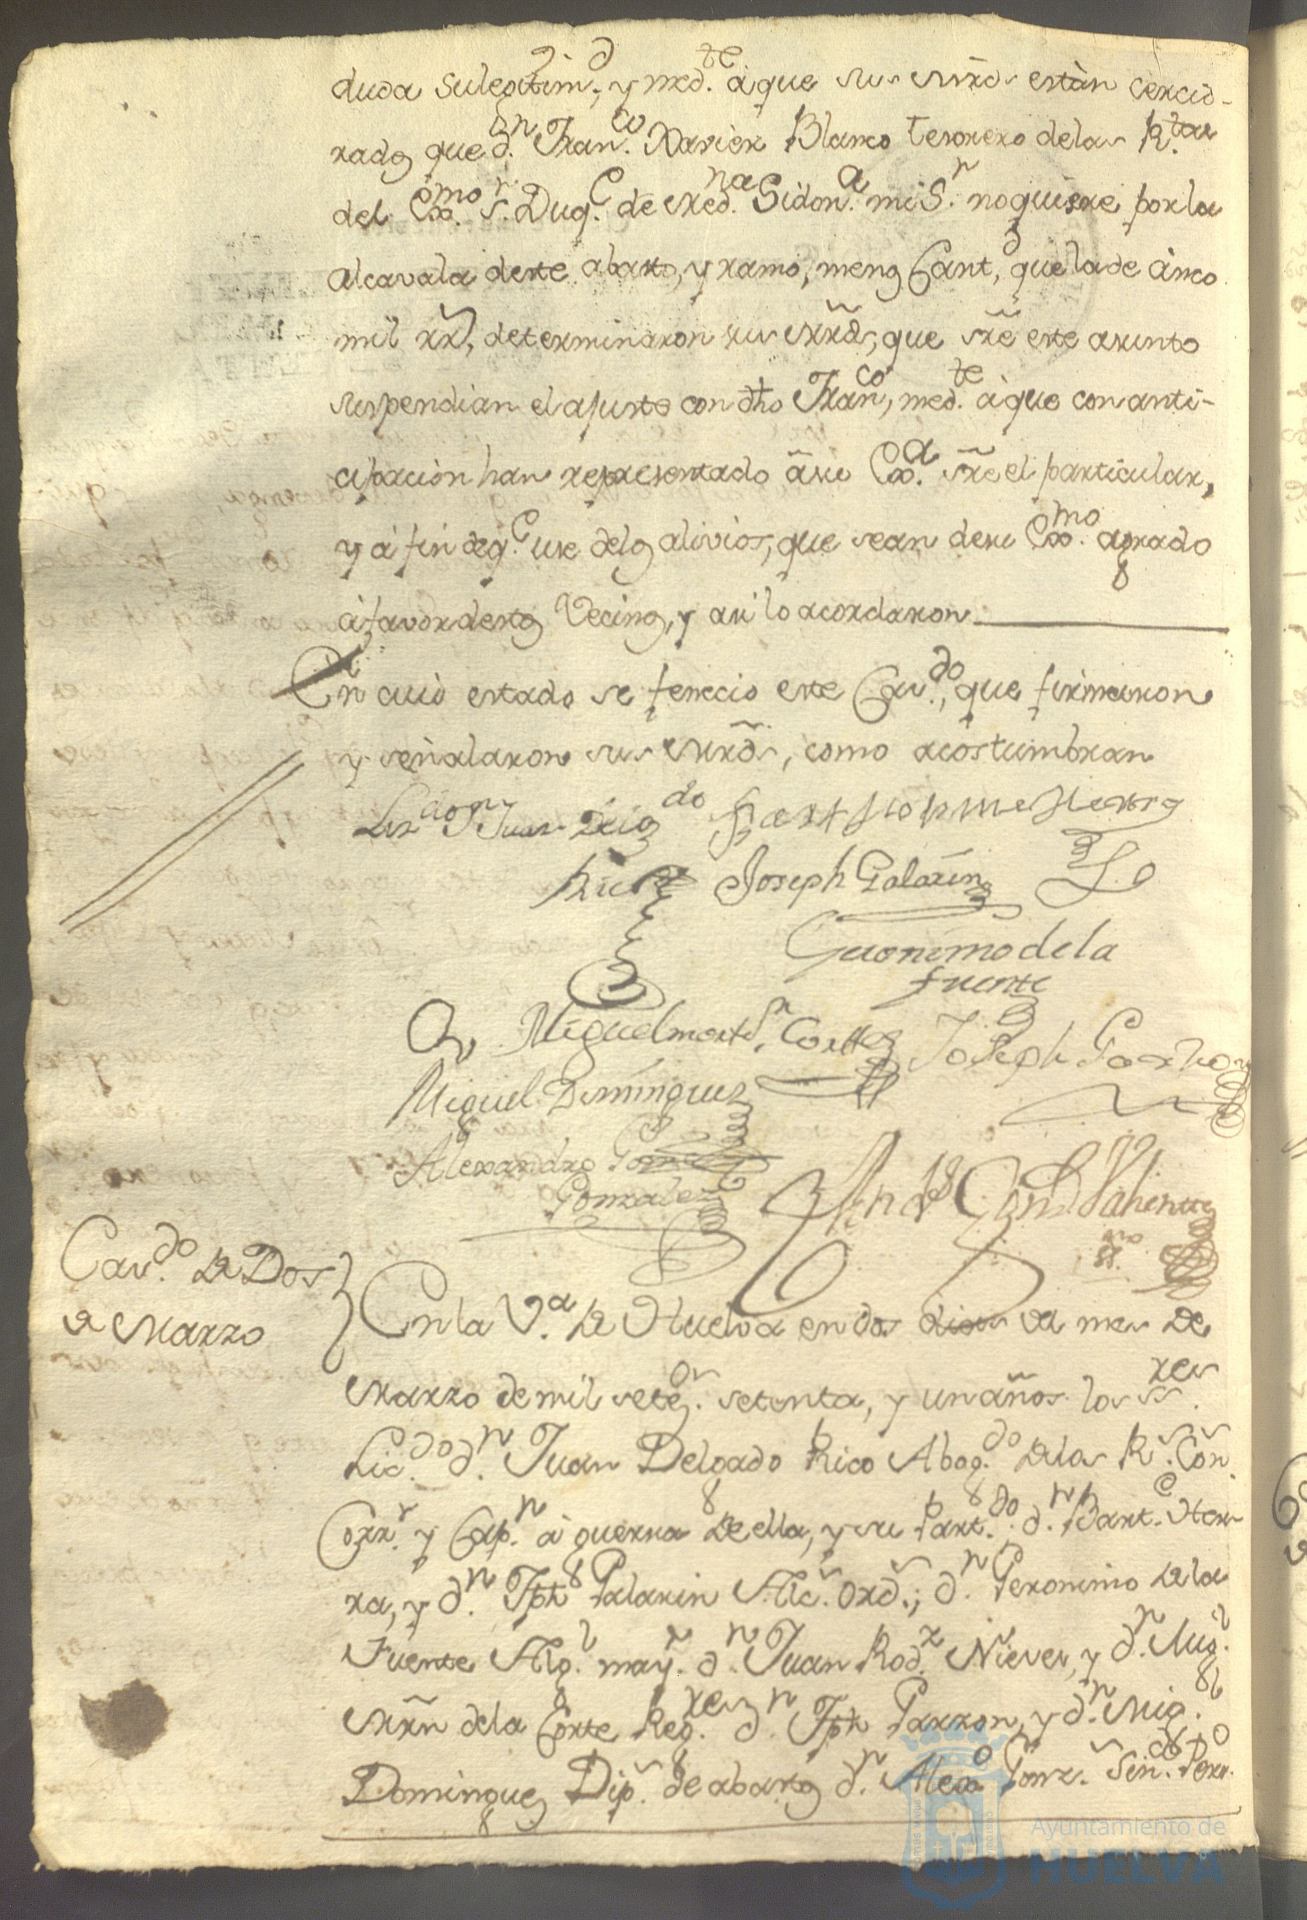 duda su legitimd., y medte. à que sus mrds estàn cercio-
rados que dn. Franco. Xavier Blanco tesorero de las Rtas.
del Exmo. sr. Duqe. de Medna Sidona. mi Sr. no quiere por la
alcavala deste abasto, y ramo, menos Cantd, que la de cinco
mil rrs, determinaron sus mrds, que sre este asunto
suspendian el ajuste con dho Franco, medte. à que con anti-
cipacion han representado à su Exa. sre el particular,
y à fin de qe. use de los alivios, que sean de su Exmo. agrado
à favor destos Vecinos, y asi lo acordaron
En cuio estado se fenecio este Cavdo., que firmaron
y señalaron sus mrds, como acostumbran
Lizdo Dn Juan Delgdo
Rico
Bartholome Herrera
Joseph Galarin
Geronimo de la
fuente
Miguel Martn. Cortte
Joseph Garzon
Miguel Dominguez
Alexandro Gomez
Gonzalez
Cavdo. de Dos
de Marzo
En la Va. de Huelva en dos dias del mes de
Marzo de mil seteos. setenta, y un años los ssres.
Licdo. dn. Juan Delgado Rico Abogdo. de las Rs. Cons.
Corrr. y Capn. à guerra de ella, y su Partdo. dn. Barte. Herre-
ra, y dn. Jph Galarin Alcs. ords.; dn. Geronimo de la
Fuente Algl. mayr. dn. Juan Rodz. Nieves, y dn. Migl.
Mrn de la Corte Regres. dn. Jph Garzon, y dn. Migl.
Dominguez Dips. de abastos dn. Alexo Gonz. Sindco Perso.
Ayuntamiento de
HUELVA